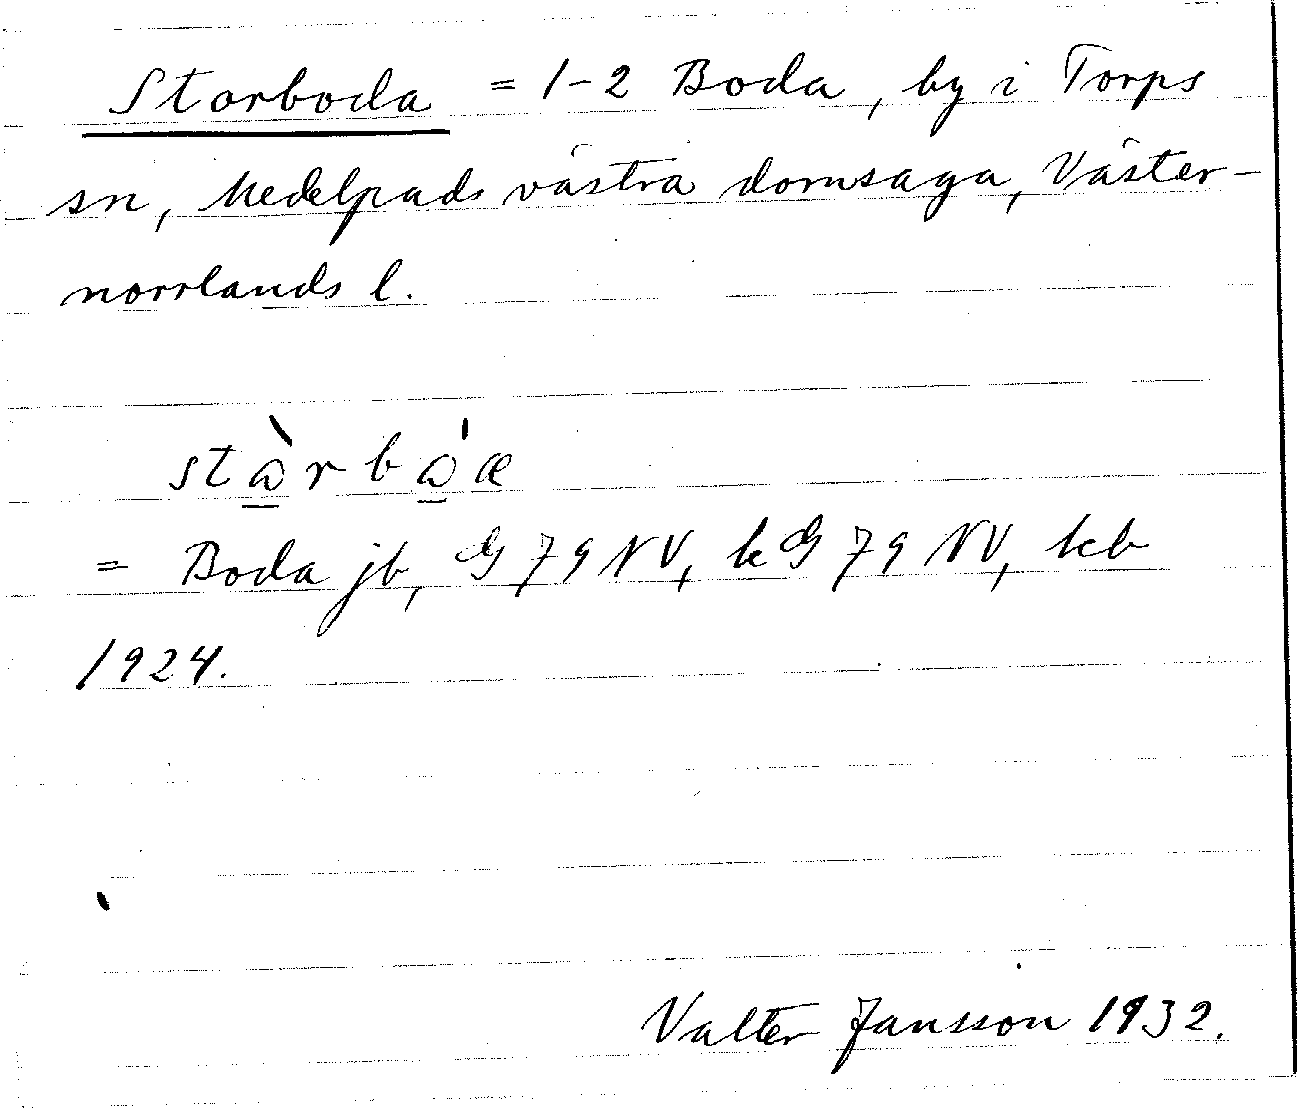 Storboda = 1-2 Boda, by i Torps
sn, Medelpads västra domsaga, Väster-
norrlands l.
= Boda jb, G 79 NV, kG 79 NV, kb
1924.
Valter Jansson 1932.